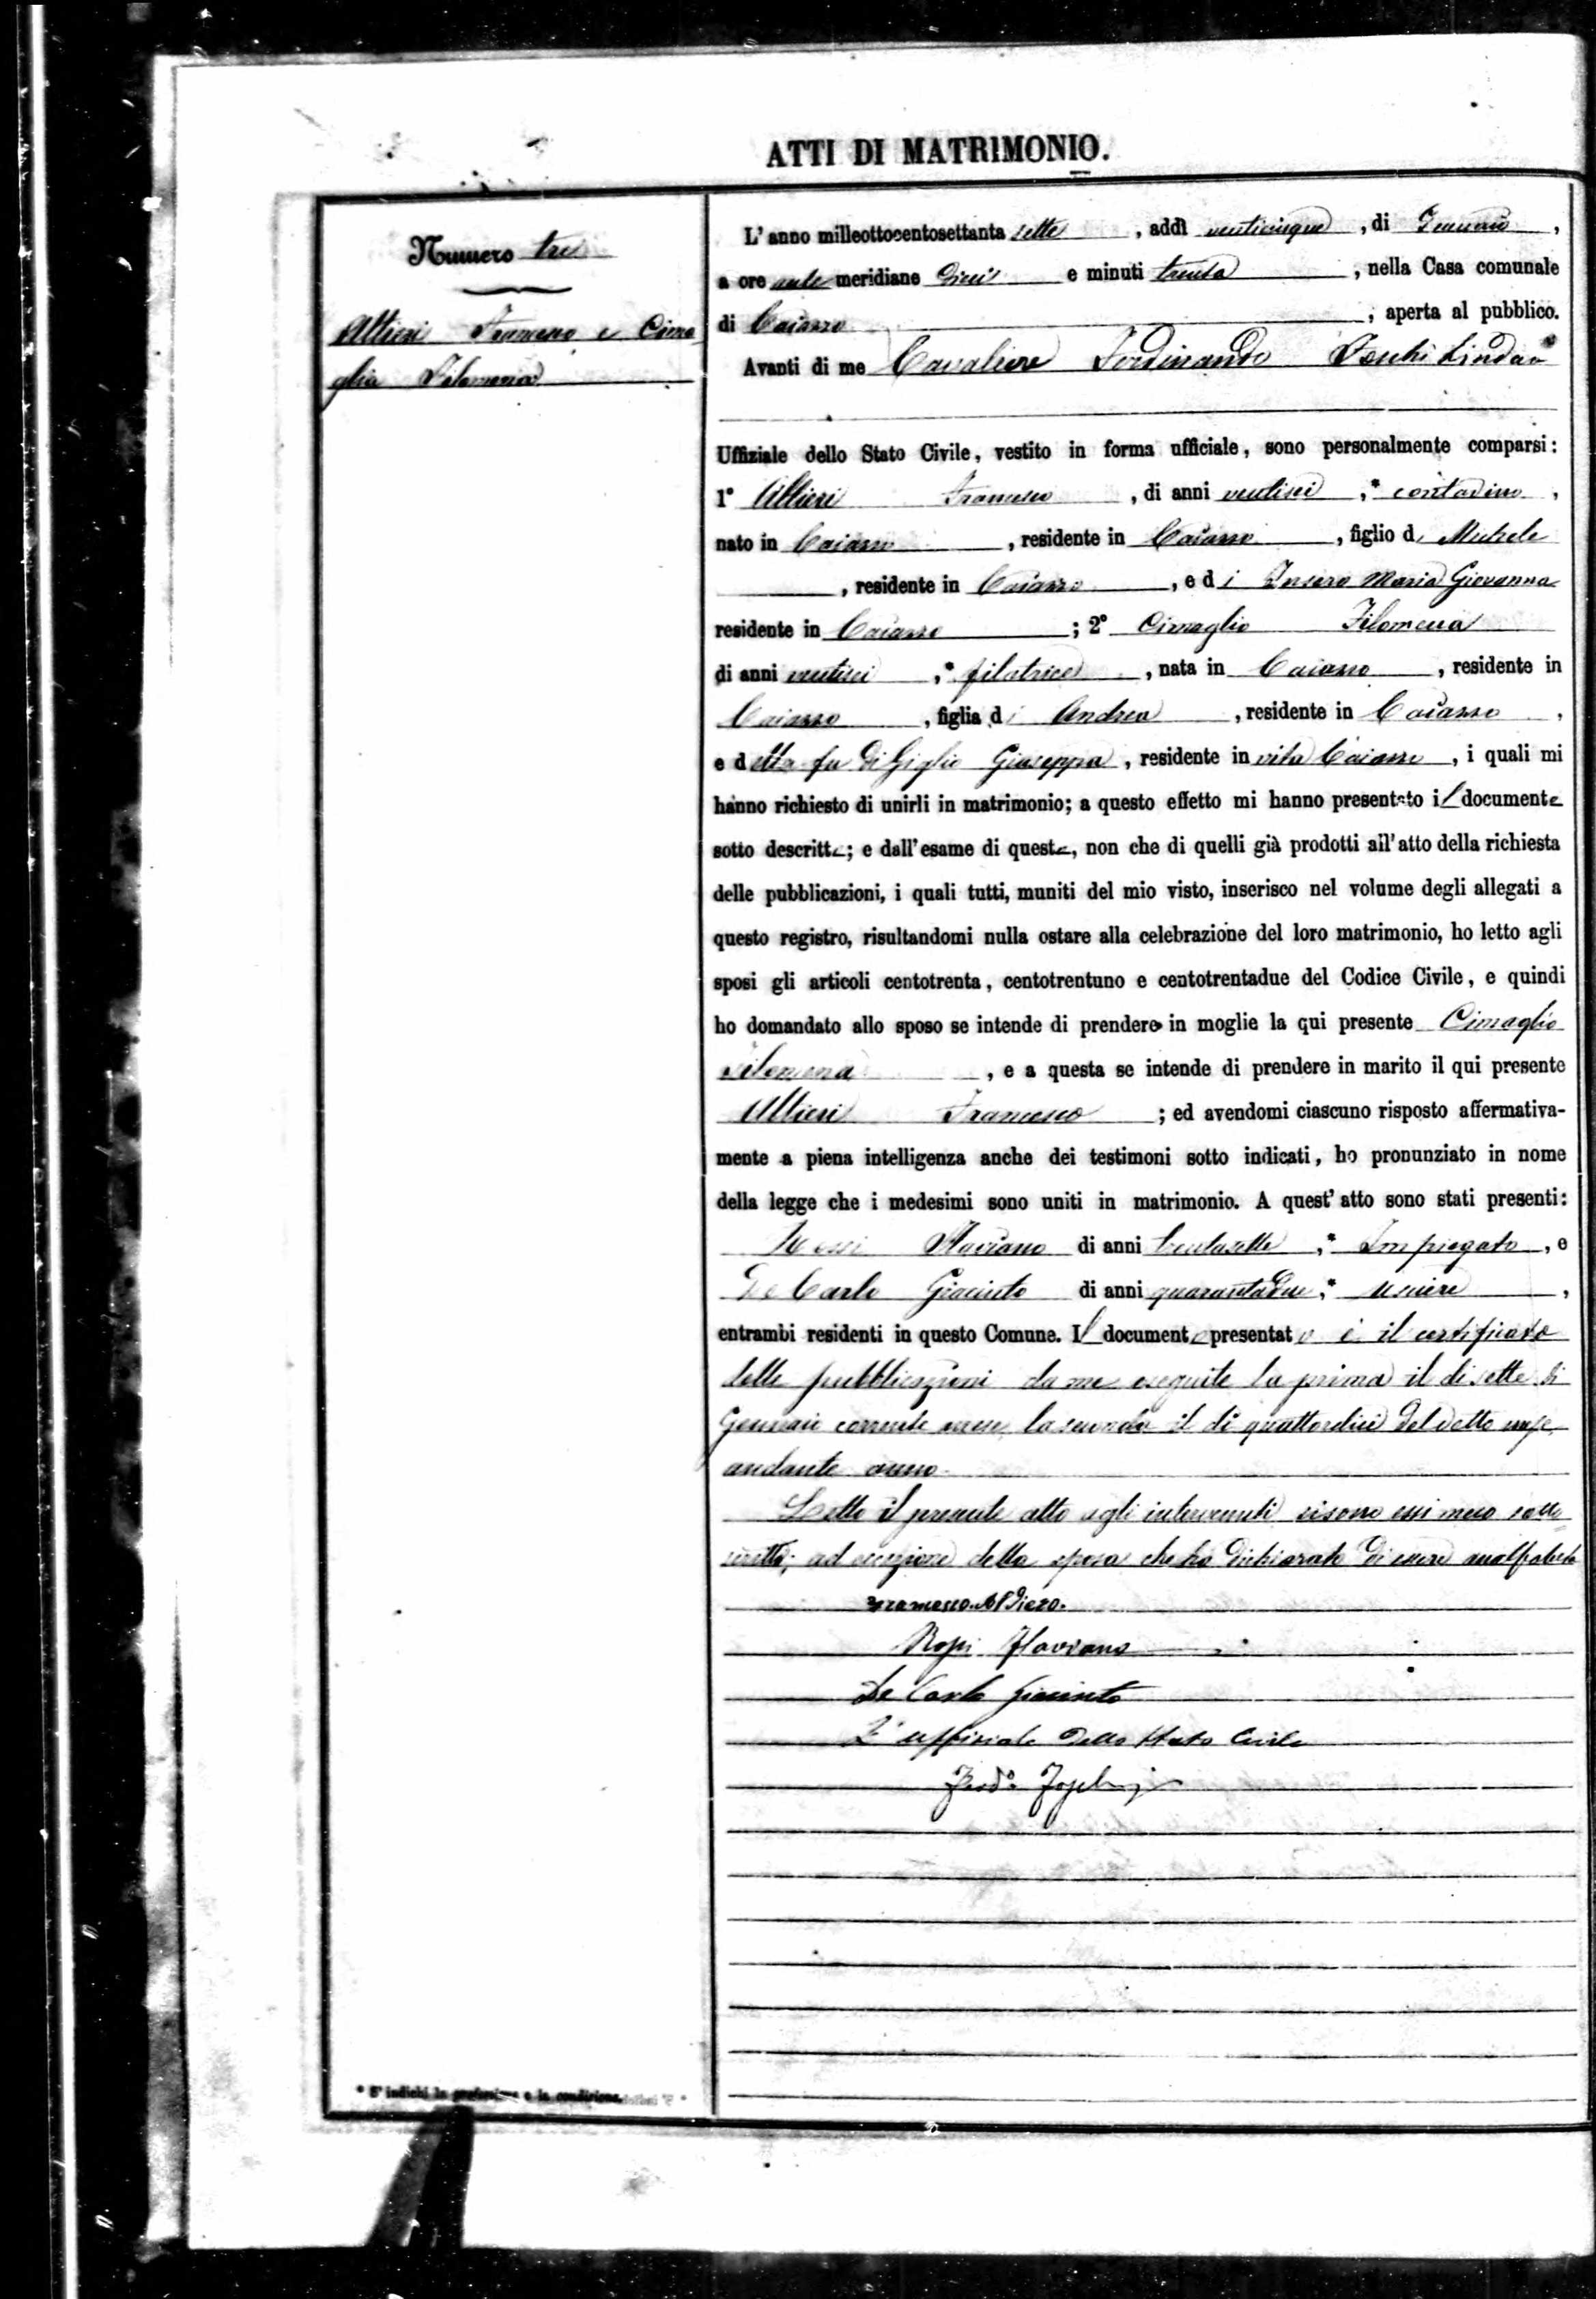 ATTI DI MATRIMONIO.
Numero tre
Altieri Francesco e Cima
glia Filomena
L'anno milleottocentosettanta sette, addì venticinque, di Gennaio,
a ore ante meridiane dieci e minuti trenta, nella Casa comunale
di Caiazzo, aperta al pubblico.
Avanti di me Cavaliere Ferdinando Sindaco
Uffiziale dello Stato Civile, vestito in forma ufficiale, sono personalmente comparsi:
1° Altieri Francesco, di anni ventisei, * contadino,
nato in Caiazzo, residente in Caiazzo, figlio di Michele
, residente in Caiazzo, e di Insero Maria Giovanna
residente in Caiazzo; 2° Cimaglia Filomena
di anni ventisei, * filatrice, nata in Caiazzo, residente in
Caiazzo, figlia di Andrea, residente in Caiazzo,
e della fu Di Giglio Giuseppa, residente in vita Caiazzo, i quali mi
hanno richiesto di unirli in matrimonio; a questo effetto mi hanno presentato il documento
sotto descritto; e dall'esame di questo, non che di quelli già prodotti all'atto della richiesta
delle pubblicazioni, i quali tutti, muniti del mio visto, inserisco nel volume degli allegati a
questo registro, risultandomi nulla ostare alla celebrazione del loro matrimonio, ho letto agli
sposi gli articoli centotrenta, centotrentuno e centotrentadue del Codice Civile, e quindi
ho domandato allo sposo se intende di prendere in moglie la qui presente Cimaglia
Filomena, e a questa se intende di prendere in marito il qui presente
Altieri Francesco; ed avendomi ciascuno risposto affermativa-
mente a piena intelligenza anche dei testimoni sotto indicati, ho pronunziato in nome
della legge che i medesimi sono uniti in matrimonio. A quest'atto sono stati presenti:
Rossi Flaviano di anni trentasette, * Impiegato, e
De Carlo Giacinto di anni quarantadue, * usciere,
entrambi residenti in questo Comune. Il documento presentato è il certificato
delle pubblicazioni da me eseguite la prima il dì sette di
Gennaio corrente mese, la seconda il dì quattordici del detto mese
andante anno.
Letto il presente atto agli intervenuti si sono essi meco sotto
scritti; ad eccezione della sposa che ha dichiarato di essere analfabeta
Francesco Altiero.
Rossi Flaviano
De Carlo Giacinto
L'uffiziale dello Stato Civile
Ferd°
* S'indichi la professione o la condizione.